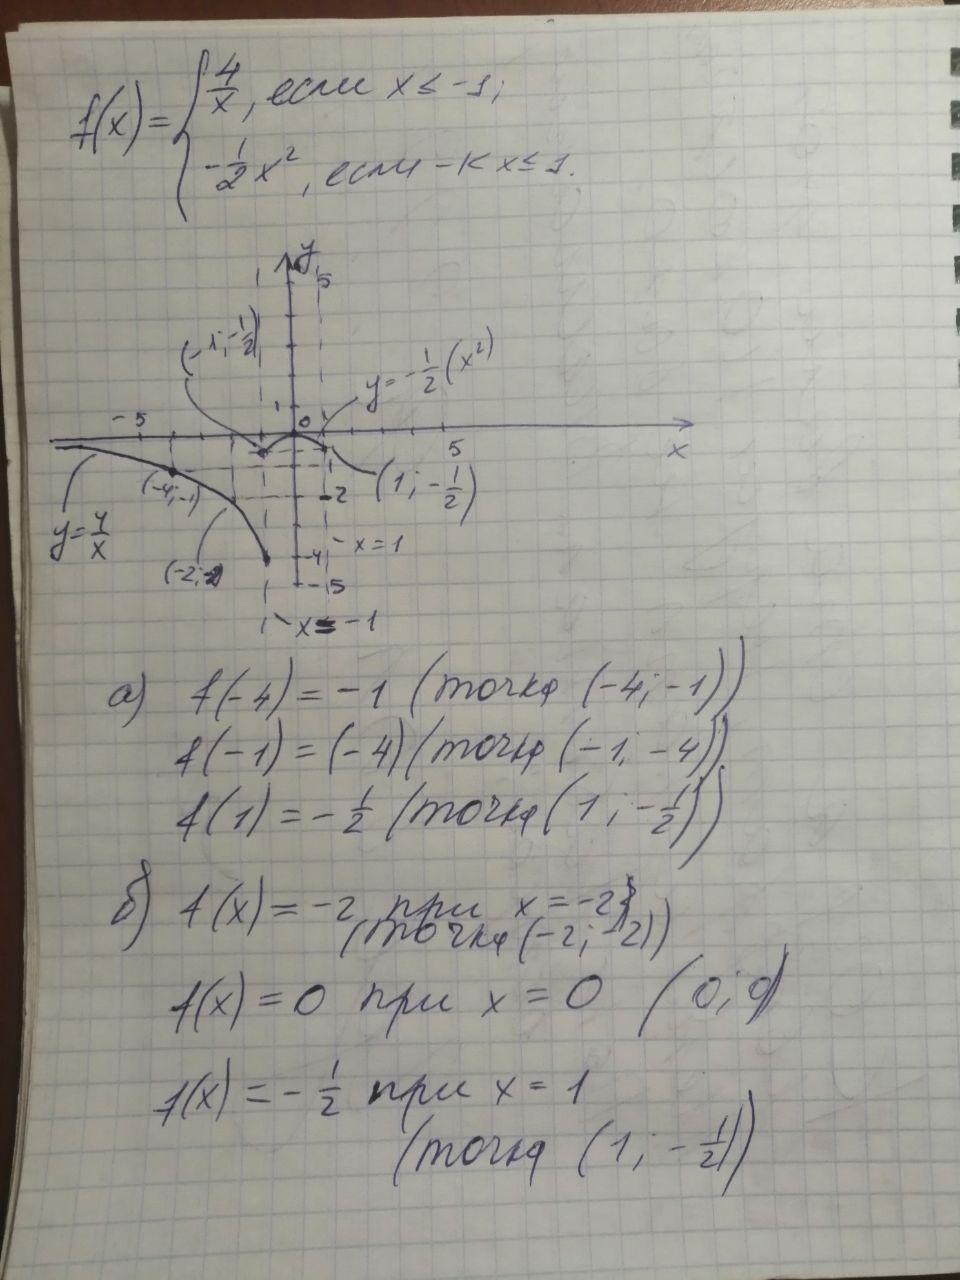 f(x) = { 4/x, если x ≤ -1;
-1/2 x², если -1< x ≤ 1.
y
5
(-1; -1/2)
y = -1/2 (x²)
-5
1
0
5
x
(-4; -1)
(1; -1/2)
-2
y = 4/x
(-2; -2)
-4
x = 1
-5
x = -1
а) f(-4) = -1 (точка (-4; -1))
f(-1) = (-4) (точка (-1; -4))
f(1) = -1/2 (точка (1; -1/2))
б) f(x) = -2 при x = -2
(точка (-2; -2))
f(x) = 0 при x = 0 (0; 0)
f(x) = -1/2 при x = 1
(точка (1; -1/2))